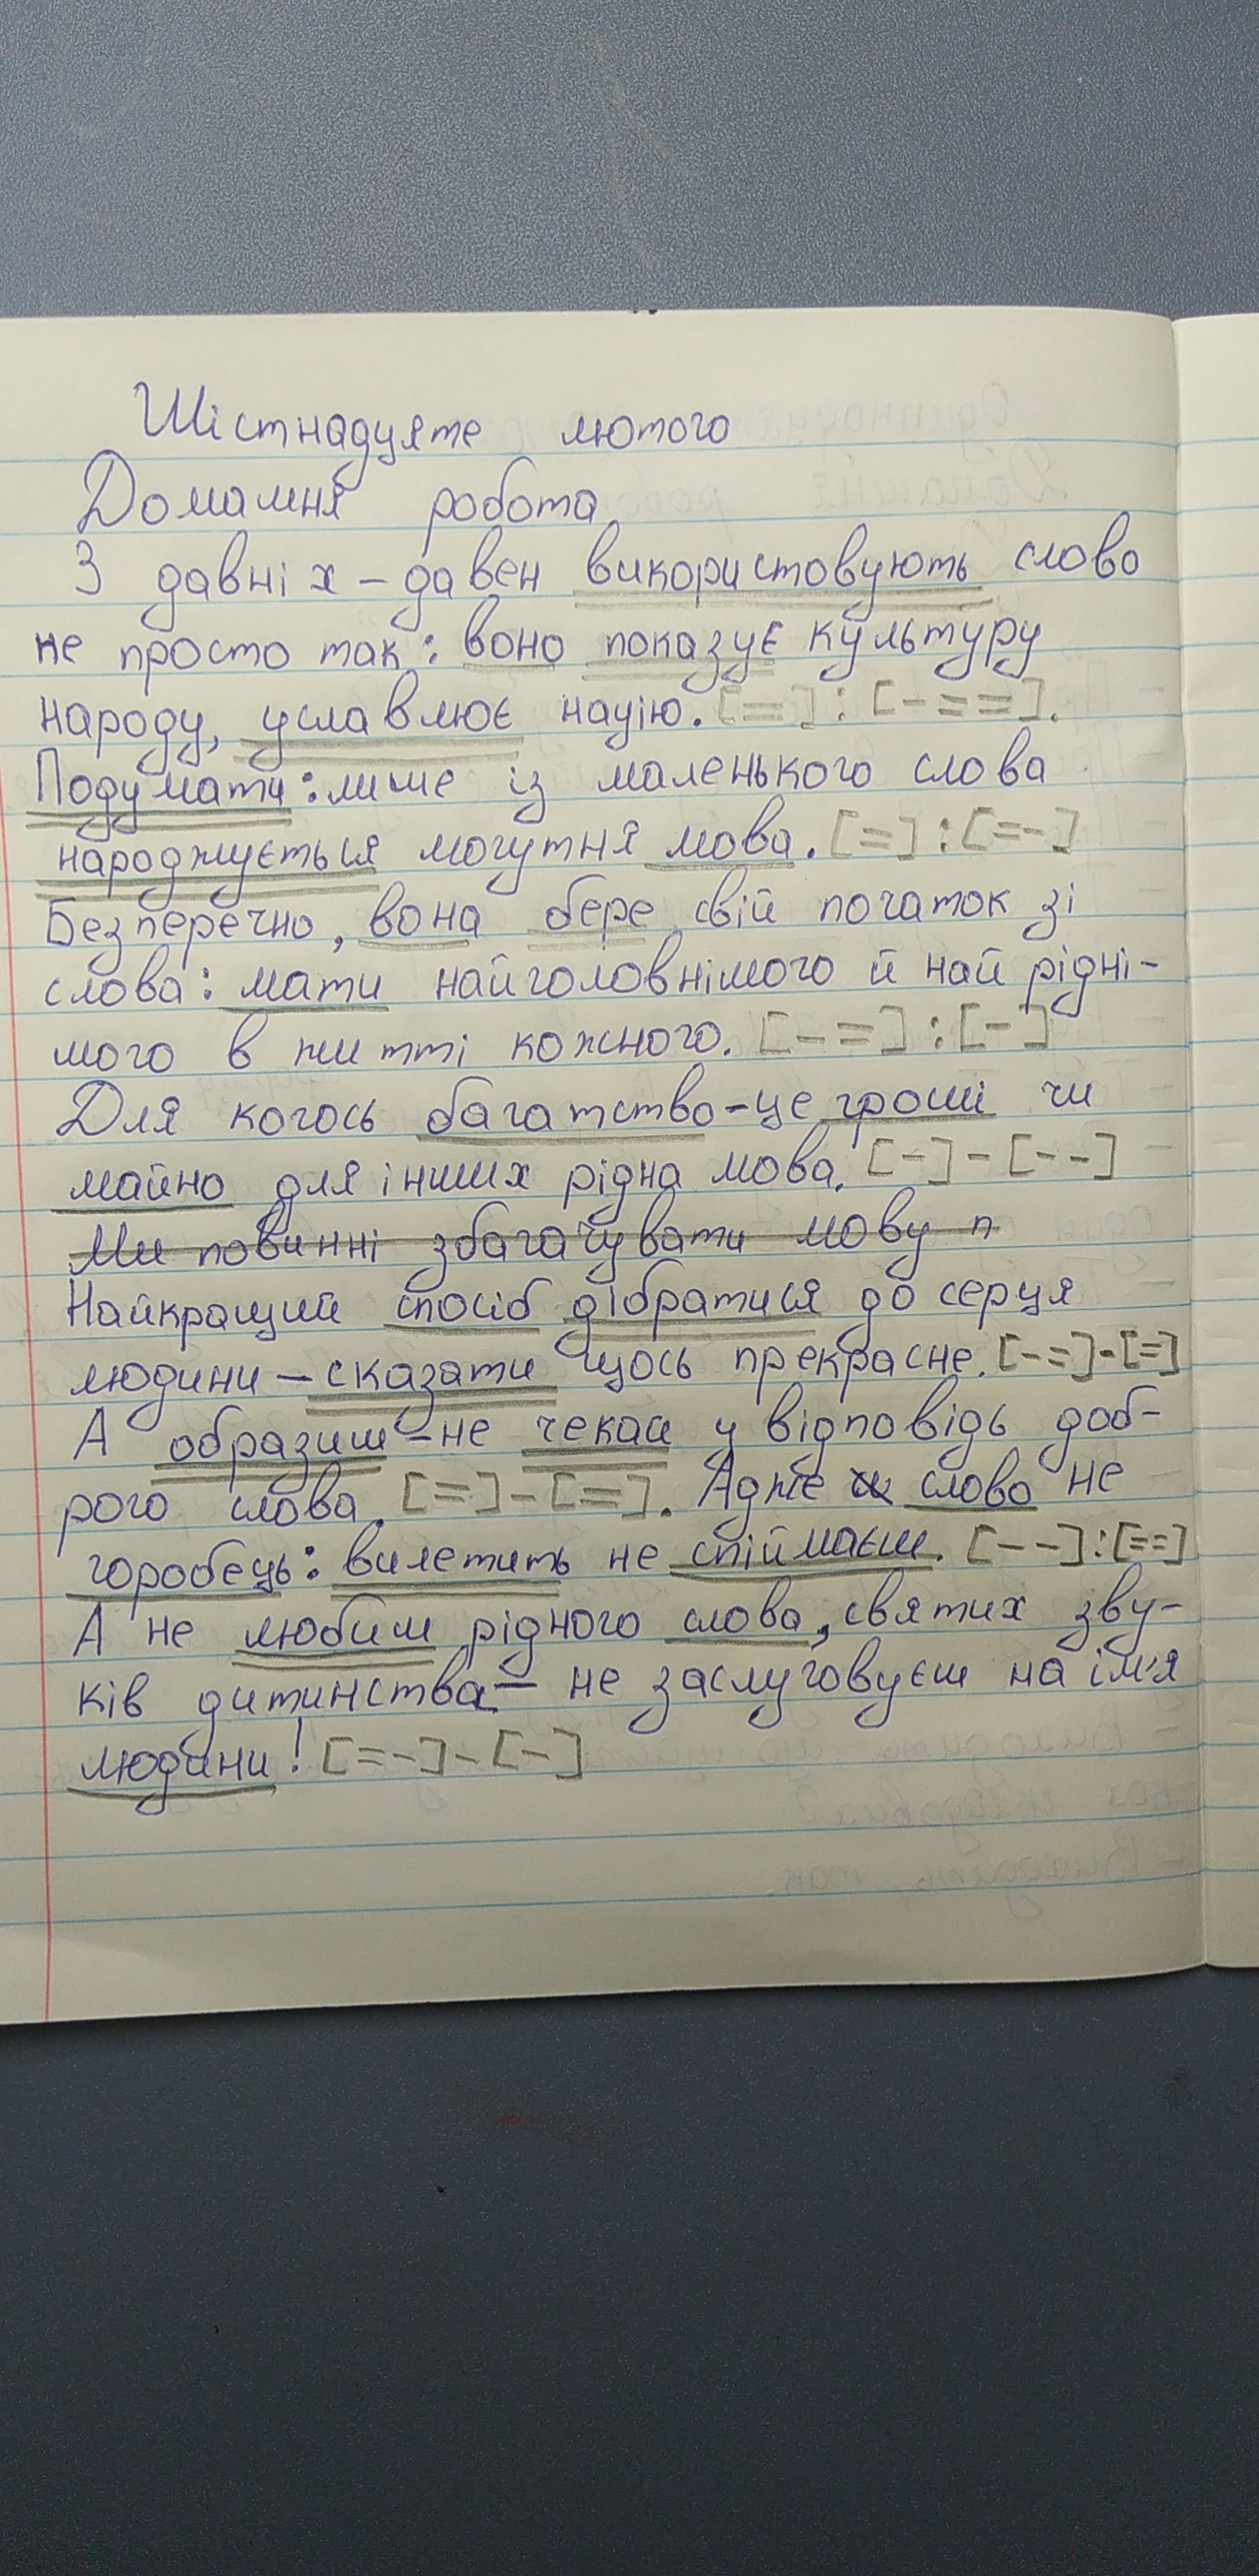 Шістнадцяте лютого
Домашня робота
З давніх-давен використовують слово
не просто так: воно показує культуру
народу, уславлює націю. [=] : [- = =].
Подумати: лише із маленького слова
народжується могутня мова. [=] : [= -]
Безперечно, вона бере свій початок зі
слова: мати найголовнішого й найрідні-
шого в житті кожного. [- =] : [-]
Для когось багатство-це гроші чи
майно для інших рідна мова. [-] - [- -]
Ми повинні збагачувати мову п
Найкращий спосіб дібратися до серця
людини – сказати щось прекрасне. [- =] - [=]
А образиш – не чекай у відповідь доб-
рого слова. [=] - [=]. Адже слово не
горобець: вилетить не спіймаєш. [- -] : [= =]
А не любиш рідного слова, святих зву-
ків дитинства – не заслуговуєш на ім'я
людини! [= -] - [-]